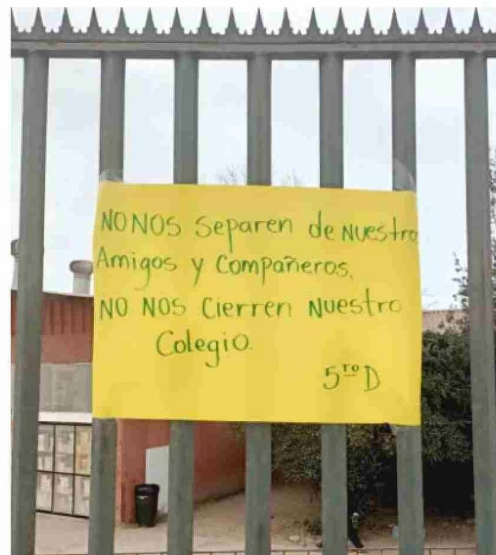 NO NOS Separen de Nuestro
Amigos y Compañeros.
NO NOS Cierren Nuestro
Colegio.
5ro D